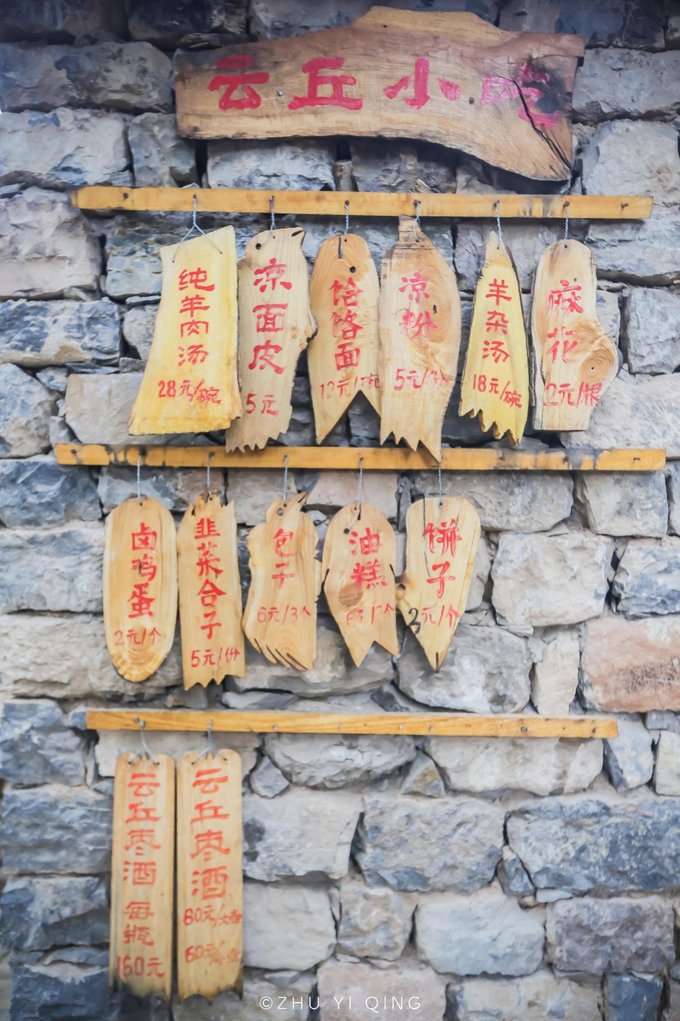 云丘小吃
纯羊肉汤
28元/碗
凉面皮
5元
饸饹面
12元/碗
凉粉
5元/份
羊杂汤
18元/碗
麻花
2元/根
卤鸡蛋
2元/个
韭菜合子
5元/份
包子
6元/3个
油糕
元/个
饼子
3元/个
云丘枣酒
每瓶
160元
云丘枣酒
80元/大壶
60元/小壶
©ZHU YI QING